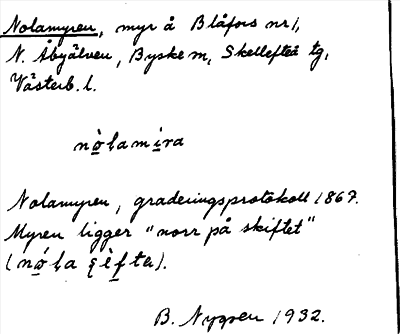 Nolamyren, myr å Blåfors nr 1,
N. Åbyälven, Byske sn, Skellefteå tg,
Västerb. l.
nòlamira
Nolamyren, graderingsprotokoll 1867.
Myren ligger "norr på skiftet"
(nǿla šèfte).
B. Nygren 1932.